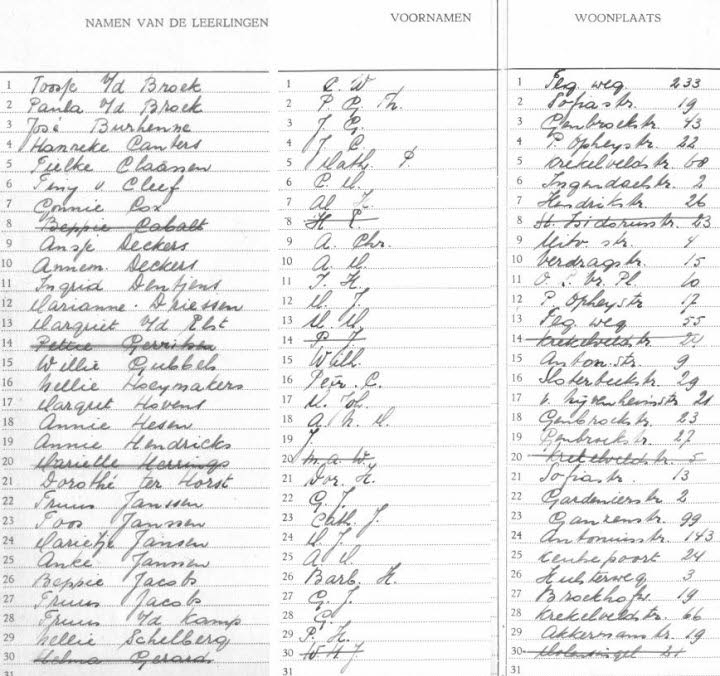 NAMEN VAN DE LEERLINGEN VOORNAMEN WOONPLAATS
1 Toosje v/d Broek 1 C. W 1 Teg. weg 233
2 Paula v/d Broek 2 P. G. Th. 2 Sofiastr. 19
3 José Burhenne 3 J. G. 3 Genbroekstr. 43
4 Hanneke Canters 4 J. C. 4 P. Opheystr. 22
5 Tielke Claassen 5 Math. P. 5 Krekelveldstr. 68
6 Tiny v. Cleef 6 C. M. 6 Ingendaelstr. 2
7 Gonnie Cox 7 Al. J. 7 Hendrikstr. 26
8 Beppie Cobalt 8 H. E. 8 St. Isidorusstr. 23
9 Ansje Deckers 9 A. Chr. 9 str. 4
10 Annem. Deckers 10 A. M. 10 Verdragstr. 15
11 Ingrid Dentjens 11 I. H. 11 O. L. Vr. Pl. 10
12 Marianne Driessen 12 M. J. 12 P. Opheystr. 17
13 Margriet v/d Elst 13 M. M. 13 Teg. weg 55
14 Petrie Gerritsen 14 P. J. 14 Krekelveldstr. 24
15 Willie Gubbels 15 Wilh. 15 Anton. str. 9
16 Nellie Hoeymakers 16 Petr. C. 16 Sloterbeekstr. 29
17 Margret Hovens 17 M. Th. 17 v. str. 21
18 Annie Hesen 18 A. h. M. 18 Genbroekstr. 23
19 Annie Hendricks 19 J. 19 Genbroekstr. 27
20 Mariëlle Herrings 20 M. a. W. 20 Krekelveldstr. 5
21 Dorothé ter Horst 21 Dor. H. 21 Sofiastr. 13
22 Truus Janssen 22 G. J. 22 Gardenierstr. 2
23 Toos Janssen 23 Cath. J. 23 Ganzenstr. 99
24 Marietje Jansen 24 M. J. 24 Antoniusstr. 143
25 Anke Janssen 25 A. M. 25 Keulsepoort 24
26 Beppie Jacobs 26 Barb. H. 26 Hulsterweg 3
27 Truus Jacobs 27 G. J. 27 Broekhofw. 19
28 Truus v/d Kamp 28 G. 28 Krekelveldstr. 66
29 Nellie Schelberg 29 P. H. 29 Akkermanstr. 19
30 Helma Gerards 30 W H J 30 Molensingel 21
31 31 31